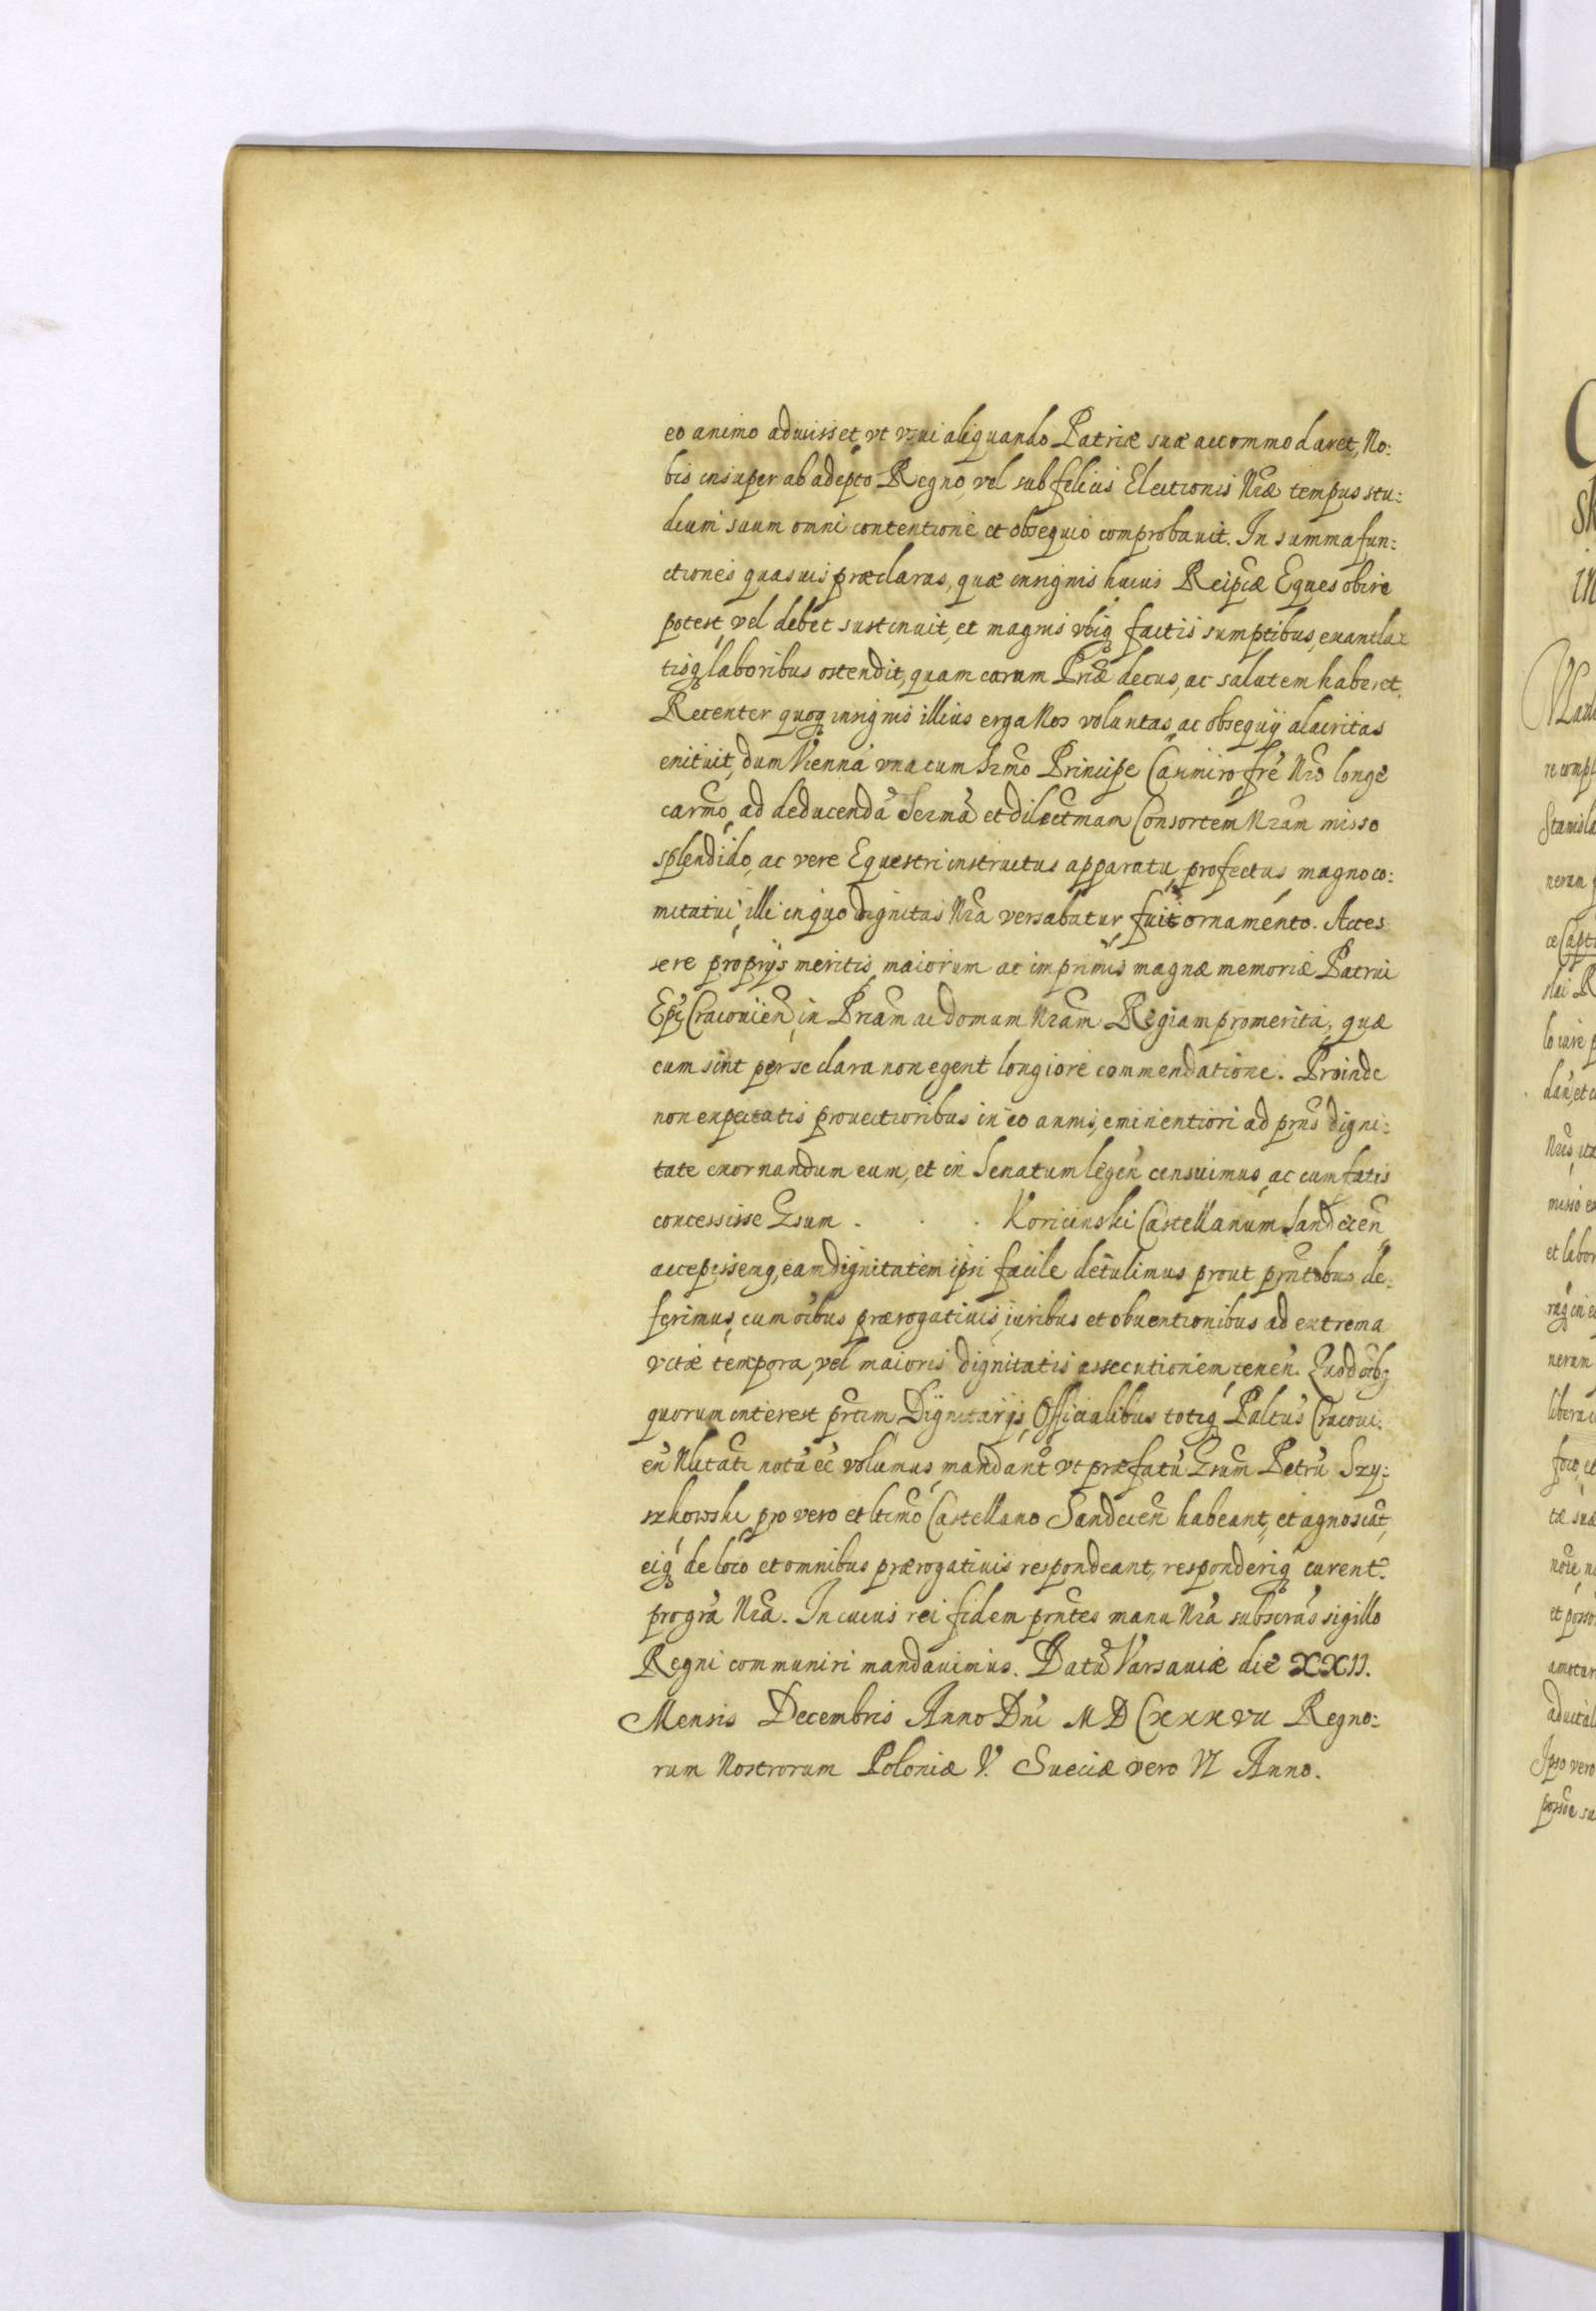 eo animo aduiisset vt vsui aliquando Patriæ suæ accommodaret, No:
bis insuper ab adepto Regno vel sub felicis Electionis Nræ tempus stu:
dium suum omni contentione et obsequio comprobauit. In summa fun:
ctiones quasuis præclaras, quæ insignis huius Reipcæ Eques obire
potest, vel debet sustinuit, et magnis vbiq factis sumptibus, exantla:
tisq laboribus ostendit, quam carum Priæ decus, ac salutem haberet.
Recenter quoq insignis illius erga Nos voluntas, ac obsequij alacritas
enituit, dum Viennã vna cum Srmo Principe Casimiro, fre Nro longe
carmo, ad deducendã Sermã et dilectmam Consortem Nram misso
splendido, ac vere Equestri instructus apparatu, profectus magno co:
mitatui, illi in quo dignitas Nra versabatur fuit ornamento. Acces
sere proprijs meritis maiorum ac imprimis magnæ memoriæ Patrui
Epi, Cracouien, in Priam ac domum Nram Regiam promerita, quæ
cum sint per se clara non egent longiore commendatione. Proinde
non expectatis prouectioribus in eo annis, eminentiori ad prns digni:
tate exornandum eum, et in Senatum legen censuimus, ac cum fatis
concessisse Gsum . . . Koricinski Castellanum Sandecen
accepissemq, eam dignitatem ipsi facile detulimus prout prntibus de:
ferimus, cum oibus prærogatiuis, iuribus et obuentionibus ad extrema
vitæ tempora, vel maioris dignitatis assecutionem tenen. Quod oibq
quorum interest prtim Dignitarijs, Officialibus totiq Paltus Cracoui:
en Nlitati notũ eẽ volumus, mandant vt præfatũ Gsum Petrũ Szy:
szkowski pro vero et ltimo Castellano Sandecen habeant, et agnoscãt,
eiq de loco et omnibus prærogatiuis respondeant, responderiq curent.
pro gra Nra. In cuius rei fidem prntes manu Nra subscras sigillo
Regni communiri mandauimus. Datũ Varsauiæ die XXII.
Mensis Decembris Anno Dni MDCxxxvii Regno:
rum Nostrorum Poloniæ V. Sueciæ vero VI Anno.